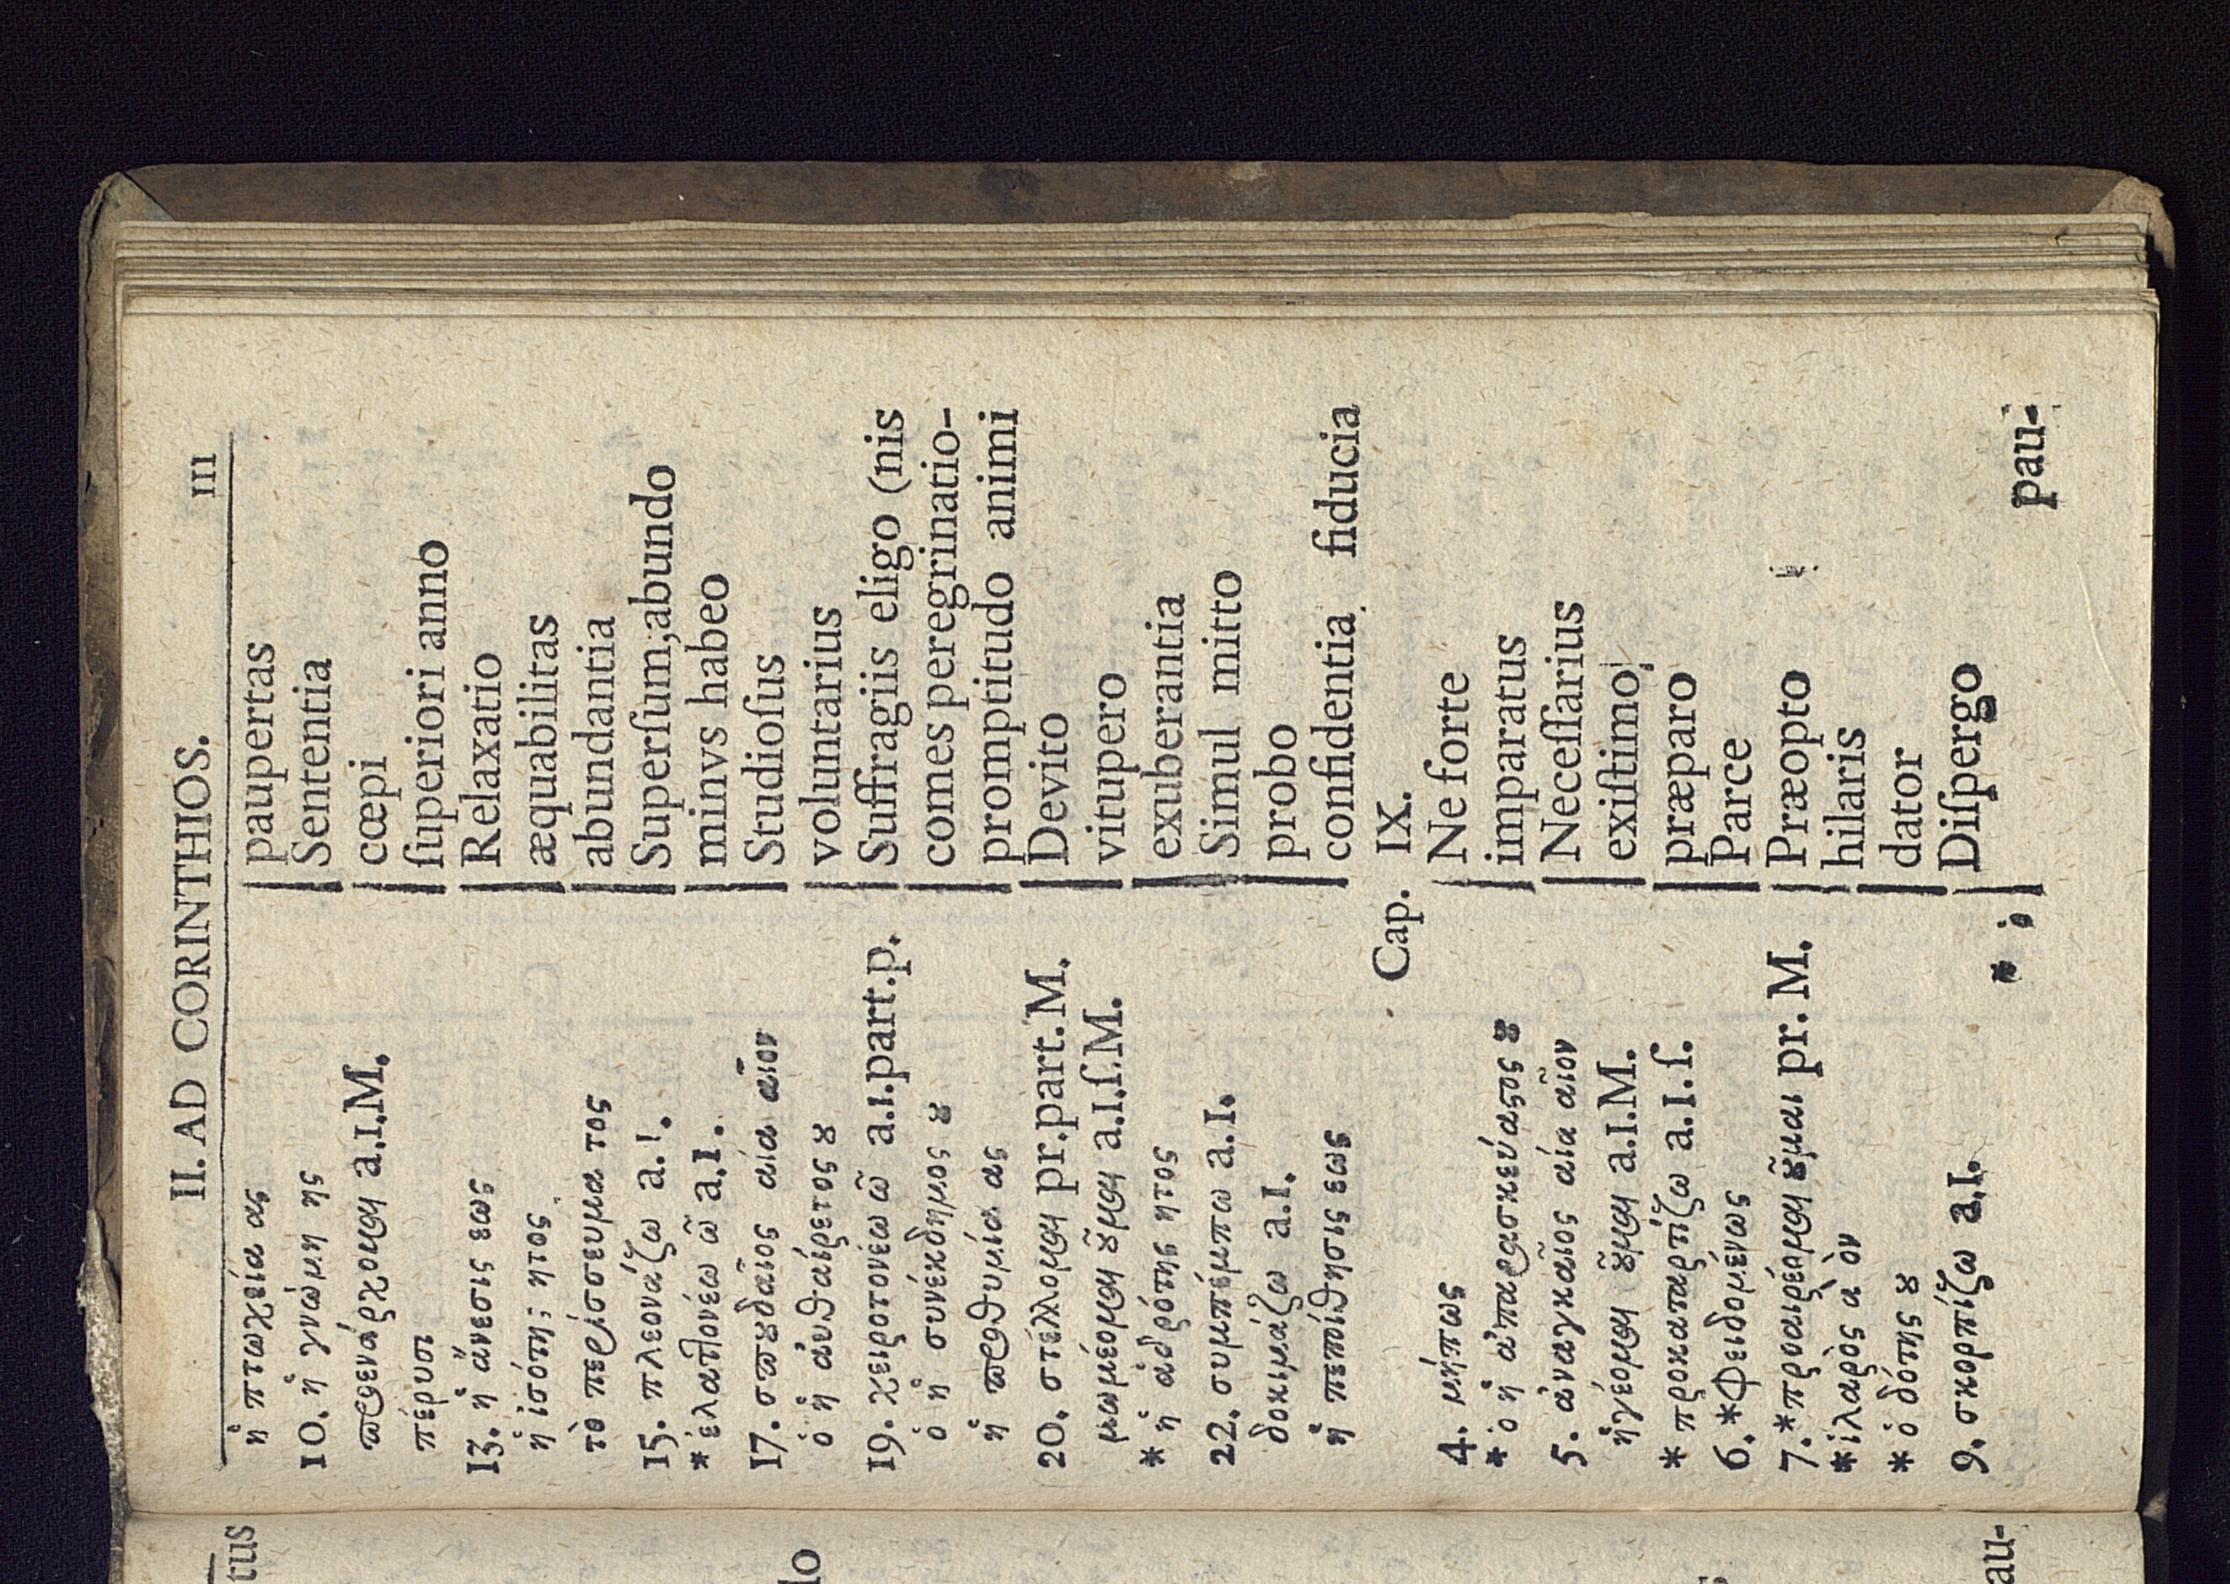 II. AD CORINTHIOS. 111
ἡ πτωχεία ας | paupertas
10. ἡ γνώμη ης | Sententia
προενάρχομαι a.1.M. | cœpi
πέρυσι | ſuperiori anno
13. ἡ ἄνεσις εως | Relaxatio
ἡ ἰσότης ητος | æquabilitas
τὸ περίσσευμα τος | abundantia
15. πλεονάζω a.1. | Superſum,abundo
* ἐλαττονέω ῶ a.1. | minvs habeo
17. σπȣδαῖος αία αῖον | Studioſus
ὁ ἡ ἀυθαίρετος ȣ | voluntarius
19. χειροτονέω ῶ a.1.part.p. | Suffragiis eligo (nis
ὁ ἡ συνέκδημος ȣ | comes peregrinatio-
ἡ προθυμία ας | promptitudo animi
20. στέλλομαι pr.part.M. | Devito
μωμέομαι ȣ͂μαι a.1.ſ.M. | vitupero
* ἡ ἁδρότης ητος | exuberantia
22. συμπέμπω a.1. | Simul mitto
δοκιμάζω a.1. | probo
ἡ πεποίθησις εως | confidentia fiducia
Cap. IX.
4. μήπως | Ne forte
* ὁ ἡ ἀπαρασκεύαστος ȣ | imparatus
5. ἀναγκαῖος αία αῖον | Neceſſarius
ἡγέομαι ȣ͂μαι a.1.M. | exiſtimo
* προκαταρτίζω a.1.ſ. | præparo
6. *Φειδομένως | Parce
7. *προαιρέομαι ȣ͂μαι pr. M. | Præopto
*ἱλαρὸς ὰ ὸν | hilaris
* ὁ δότης ȣ | dator
9. σκορπίζω a.1. | Diſpergo
* ὁ |
pau-
tus
lo
au-